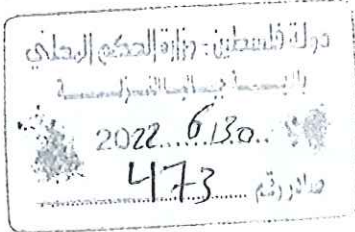 دولة فلسطين - وزارة الحكم المحلي
2022...6/30..
صادر رقم 473